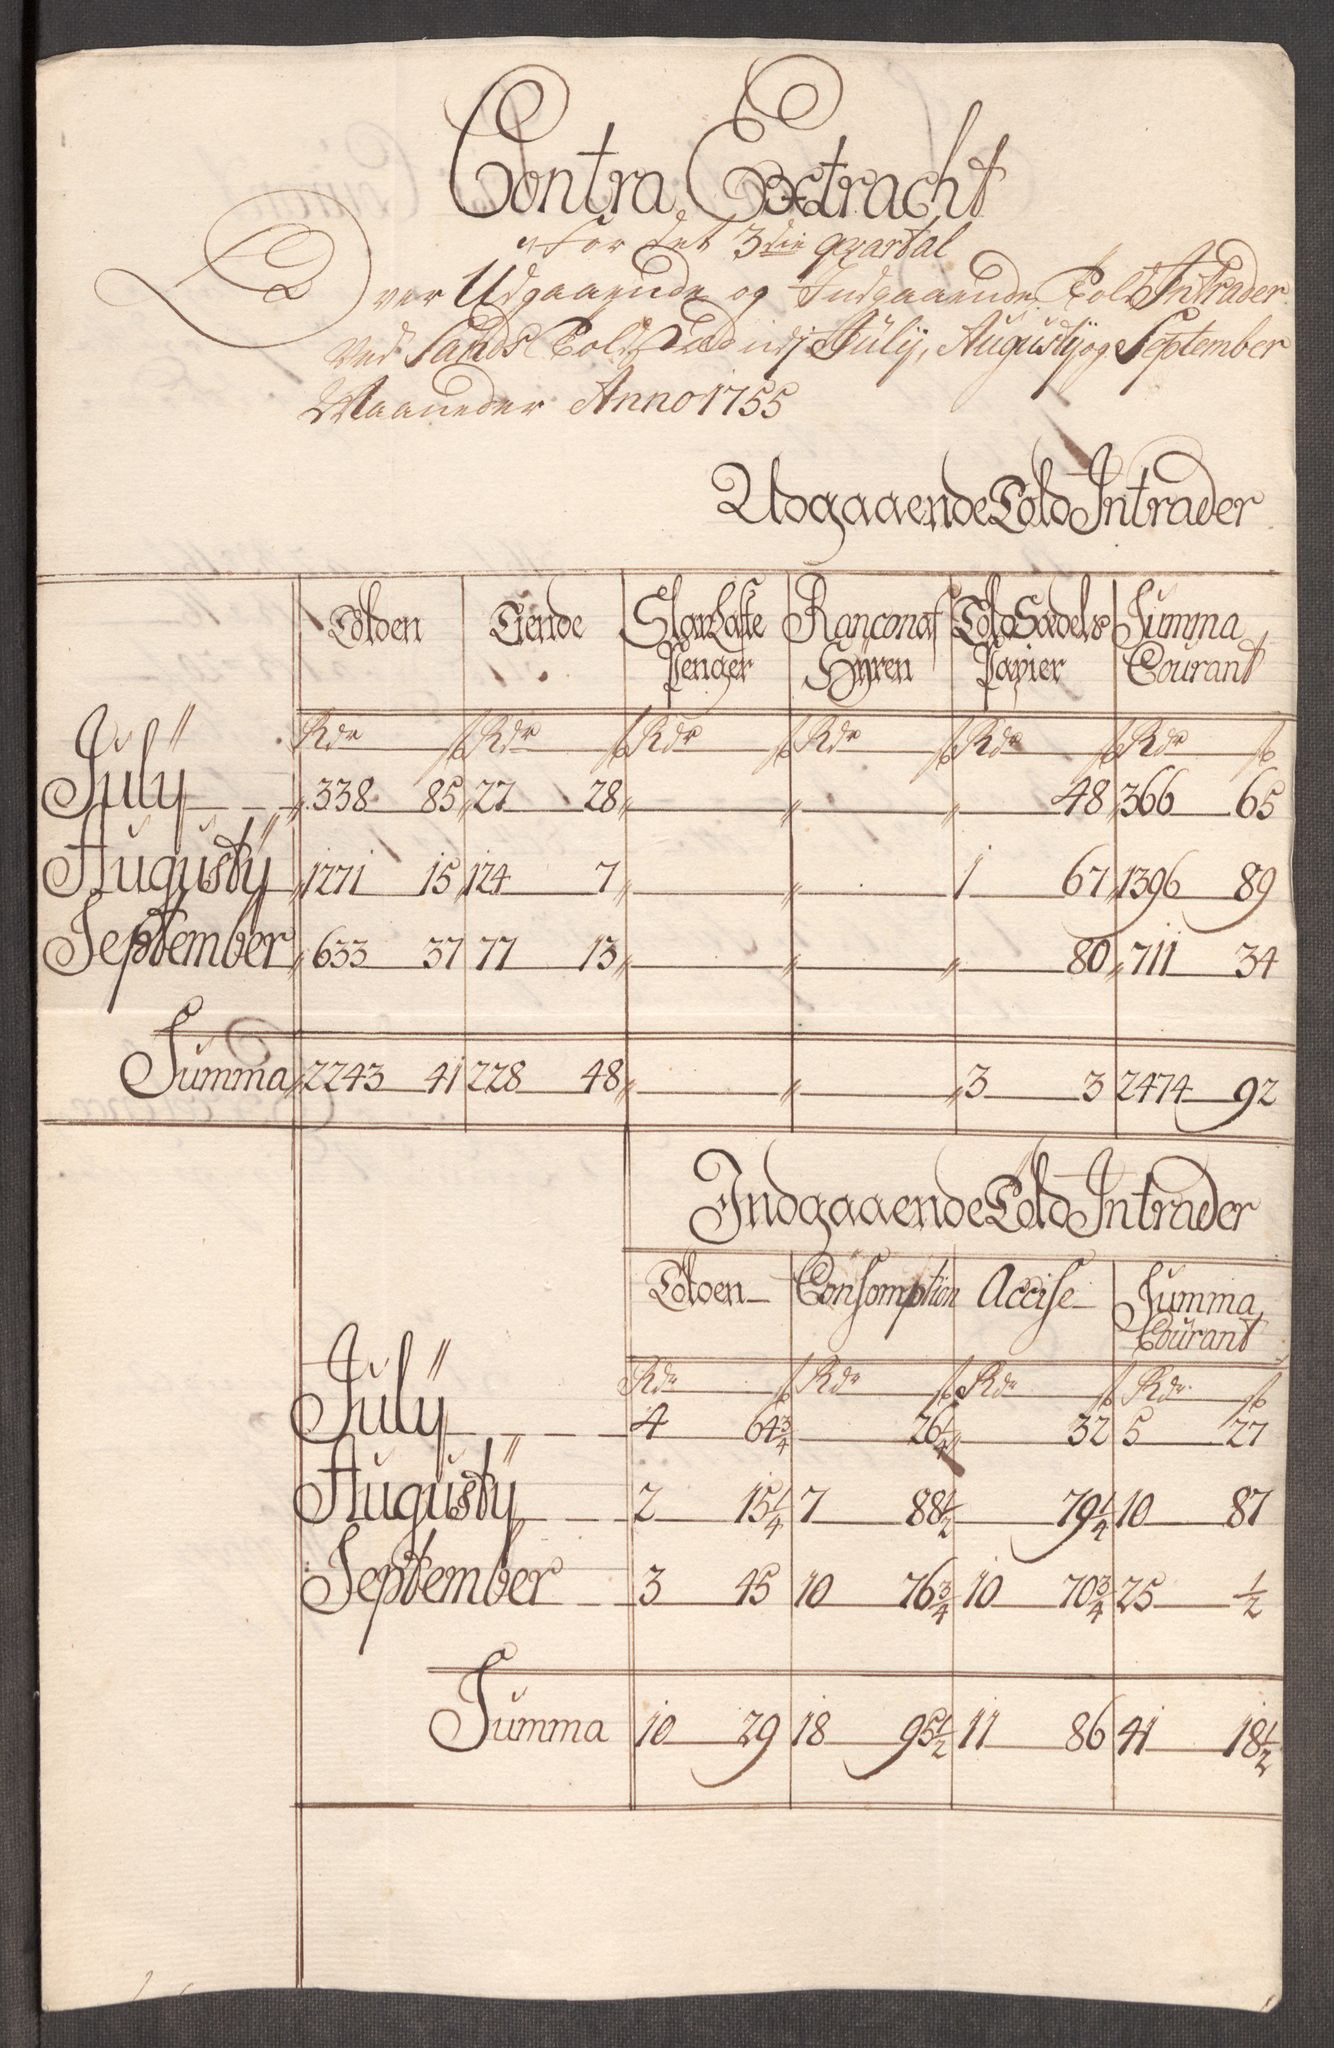 Contra Extracht
for det 3die qvartal
Over Udgaaende og Indgaaende Told Intrader
Ved Sands Told Stæd udj Julij, Augustij og September
Maaneder Anno 1755
Udgaaende Told Intrader
Tolden Tiende Slar Laste Penger Rancon af Hyren Told Sædels Papier Summa Courant
Rdr ß Rdr ß Rdr ß Rdr ß Rdr ß Rdr ß
Julÿ 338 85 27 28 " " 48 366 65
Augustÿ 1271 15 124 7 " " 1 67 1396 89
September 633 37 77 13 " " 80 711 34
Summa 2243 41 228 48 " " 3 3 2474 92
Indgaaende Told Intrader
Tolden Consomption Accise Summa Courant
Rdr ß Rdr ß Rdr ß Rdr ß
Julÿ 4 64¾ 26¼ 32 5 27
Augustÿ 2 15¼ 7 88½ 79¼ 10 87
September 3 45 10 76¾ 10 70¾ 25 ½
Summa 10 29 18 95½ 11 86 41 18½